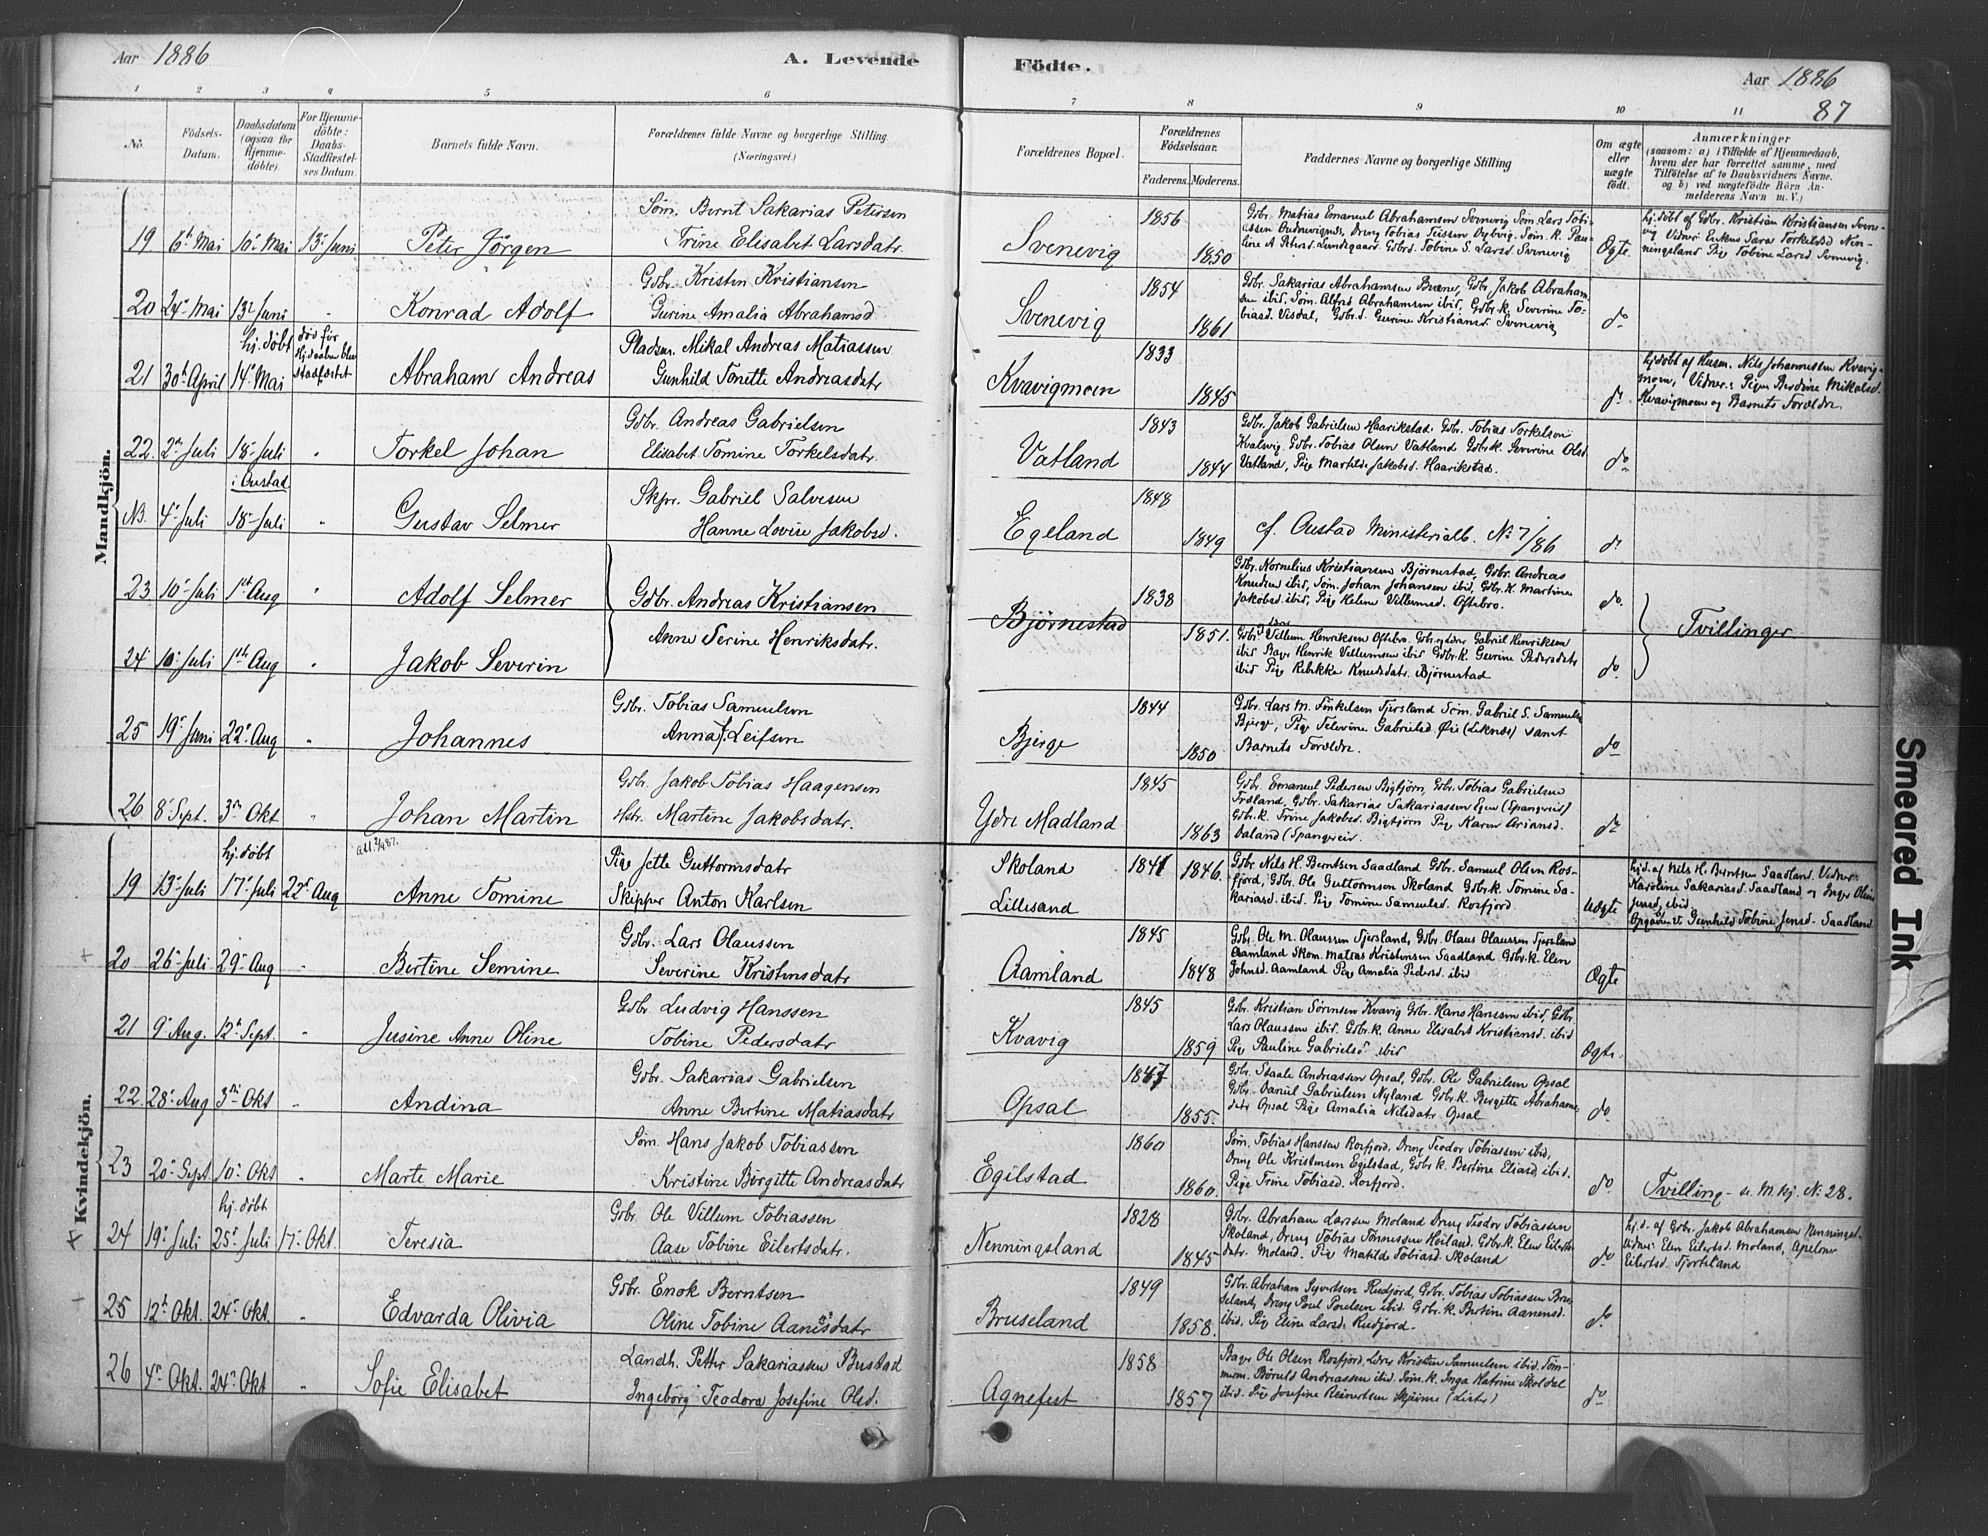 Aar 1886 A. Levende Födte. Aar 1886
87
1 2 3 4 5 6 7 8 9 10 11
No. Födsels-Datum. Daabsdatum (ogsaa for Hjemme-döbte). For Hjemme-döbte: Daabs-Stadfæstel-ses Datum. Barnets fulde Navn. Forældrenes fulde Navne og borgerlige Stilling (Næringsvei.) Forældrenes Bopæl. Forældrenes Födselsaar. Faderens. Moderens. Faddernes Navne og borgerlige Stilling Om ægte eller uægte födt. Anmærkninger (saasom: a) i Tilfælde af Hjemmedaab, hvem der har forrettet samme, med Tilföielse af to Daabsvidners Navne, og b) ved uægtefödte Börn An-melderens Navn m. V.)
Mandkjön.
19 6te Mai 10de Mai 13de Juni Peter Jörgen Søm. Bernt Sakarias Petersen
Trine Elisabet Larsdatr. Svenevig 1856 1850 Gdbr. Matias Emanuel Abrahamsen Svenevig Søm. Lars Tobi-
Ægte hj.døbt af Gdbr. Kristian Kristiansen Svene-
vig Vidner: Enkens Sara Torkelsd. Nen-
ningsland Pige Tobine Larsd. Svenevig.
20 24de Mai 13de Juni " Konrad Adolf Gdbr. Kristen Kristiansen
Gurine Amalia Abrahamsd Svenevig 1854 1861 Gdbr. Sakarias Abrahamsen Buene, Gdbr. Jakob Abraham-
sen ibid. Søm. Alfred Abrahamsen ibid. Gdbr.k. Severine To-
biasd. Visdal, Gdbr.d. Gurine Kristiansd. Svenevig do
21 30te April hj.döbt 14de Mai død før Hj.daaben blev stadfæstet Abraham Andreas Pladsm. Mikal Andreas Matiassen
Gunhild Tonette Andreasdatr Kvavigmoen 1833 1845 do hj.døbt af Husm. Nils Johannessen Kvavig-
moen, Vidner: Pigen Berdine Mikalsd.
Kvavigmoen og Barnets Forældre.
22 2den Juli 18de Juli " Torkel Johan Gdbr. Andreas Gabrielsen
Elisabet Tomine Torkelsdatr. Vatland 1843 1844 Gdbr. Jakob Gabrielsen Haarikstad. Gdbr. Tobias Torkelsen
Kvalvig. Gdbr. Tobias Olsen Vatland Gdbr.k. Severine Olsd
Vatland, Pige Martilde Jakobsd. Haarikstad. do
NB. 4de Juli i Oustad 18de Juli " Gustav Selmer Skpr. Gabriel Salvesen
Hanne Lovise Jakobsd. Egeland 1848 1849 cf. Oustad Ministerialb. No 7/86 do
23 10de Juli 1ste Aug " Adolf Selmer Gdbr. Andreas Kristiansen
Anne Serine Henriksdatr. Bjørnestad 1838 1851. Gdbr. Kornelius Kristiansen Bjørnestad, Gdbr. Andreas
Knudsen ibid, Søm. Johan Johansen ibid, Gdbr.k. Martine
Jakobsd. ibid, Pige Helene Villumsd. Oftebro. do. Tvillinger
24 10de Juli 1ste Aug " Jakob Severin Villum Henriksen Oftebro. Gabriel Henriksen
ibid Bager Henrik Villumsen ibid Gdbr.k. Gurine Pedersdatr
ibid Pige Rebekke Knudsdatr. Bjørnestad do.
25 19de Juni 22de Aug " Johannes Gdbr. Tobias Samuelsen
Anna J. Leifsen Bjerge 1844 1850 Gdbr. Lars M. Tønkelsen Tjersland Søm. Gabriel S. Samuelsen
Bjerge, Pige Televine Gabrielsd. Øie (Liknes) samt
Barnets Forældre. do
26 8de Sept. 3die Okt " Johan Martin Gdbr. Jakob Tobias Haagensen
Hstr. Martine Jakobsdatr. Ydre Madland 1845 1863 Gdbr. Emanuel Pedersen Bigtjørn, Gdbr. Tobias Gabrielsen
Træland, Gdbr. Sakarias Sakariassen Egen (Spangereid)
Gdbr.k. Trine Jakobsd. Bigtjörn Pige Karen Ariansd.
Daland (Spangereid. do
Kvindekjön.
19 13de Juli hj.döbt 17de Juli 22de Aug Anne Tomine Pige Jette Guttormsdatr
Skipper Anton Karlsen Skoland
Lillesand 1841 1846. Gdbr. Nils H. Berntsen Saadland Gdbr. Samuel Olsen Ros-
fjord, Gdbr. Ole Guttormsen Skoland Gdbr.k. Tomine Sa-
kariasd. ibid. Pige Tomine Samuelsd. Rosfjord. Uægte hj.d. af Nils H. Berntsen Saadland. Vidner:
Karoline Sakariasd. Saadland og Inger Oline
Jensd. ibid.
Opgiven af Gunhild Tobine Jensd. Saadland.
20 26de Juli 29de Aug " Bertine Semine Gdbr. Lars Olaussen
Severine Kristensdatr Aamland 1845 1848 Gdbr. Ole M. Olaussen Tjersland, Gdbr. Olaus Olaussen Tjersland
Aamland Skom. Matias Kristensen Saadland Gdbr.k. Elen
Johnsd. Aamland Pige Amalia Pedersd. ibid Ægte
21 9de Aug. 12te Sept. " Jusine Anne Oline Gdbr. Ludvig Hanssen
Tobine Pedersdatr Kvavig 1845 1859 Gdbr. Kristian Sörensen Kvavig Gdbr. Hans Hanssen ibid, Gdbr.
Lars Olaussen ibid. Gdbr.k. Anne Elisabet Kristiansd. ibid
Pige Pauline Gabrielsd. ibid Ægte.
22 28de Aug 3die Okt " Andina Gdbr. Sakarias Gabrielsen
Anne Bertine Matiasdatr Opsal 1847 1855. Gdbr. Staale Andreassen Opsal, Gdbr. Ole Gabrielsen Opsal
Gdbr. Daniel Gabrielsen Nyland Gdbr.k. Bergitte Abrahams-
datr Opsal Pige Amalia Nilsdatr. Opsal do
23 20de Sept. 10de Okt " Marte Marie Søm. Hans Jakob Tobiassen
Kristine Birgitte Andreasdatr Egilstad 1860 1860. Søm. Tobias Hanssen Rosfjord, Dreng Teodor Tobiassen ibid,
Dreng Ole Kristensen Egilstad, Gdbr.k. Bertine Eliasd. ibid.
Pige Trine Tobiasd. Rosfjord. do Tvilling - se M.kj. No 28.
24 19de Juli hj.döbt 25de Juli 17de Okt. Teresia Gdbr. Ole Villum Tobiassen
Aase Tobine Eilertsdatr. Nenningsland 1828 1845 Gdbr. Abraham Larssen Moland Dreng Teodor Tobiassen
Skoland, Dreng Tobias Tönnessen Höiland. Gdbr.k. Elen Eilerts
datr. Moland. Pige Matilde Tobiasd. Skoland do hj.d. af Gdbr. Jakob Abrahamsen Nenningsl.
Vidner: Elen Eilertsd. Moland, Apelone
Eilertsd. Fjorteland
25 12te Okt. 24de Okt. " Edvarda Olivia Gdbr. Enok Berntsen
Oline Tobine Aanesdatr Bruseland 1849 1858. Gdbr. Abraham Sigvertsen Rudjord, Gdbr. Tobias Tobiassen Bru-
seland, Dreng Poul Poulsen ibid. Gdbr.k. Bertine Aanensd.
ibid, Pige Eline Larsd. Rudjord. do
26 4de Okt. 24de Okt " Sofie Elisabet Landh. Petter Sakariassen Bustad
Ingeborg Teodora Josefine Olsd. Agnefest 1858 1857 Bager Ole Olsen Rosfjord, Kristen Samuelsen ibid. Tøm-
merm. Børuld Andreassen ibid. Søm.k. Inga Katrine Skoldal
ibid. Pige Josefine Reinertsen Skjeime (Lister) do
Smeared Ink